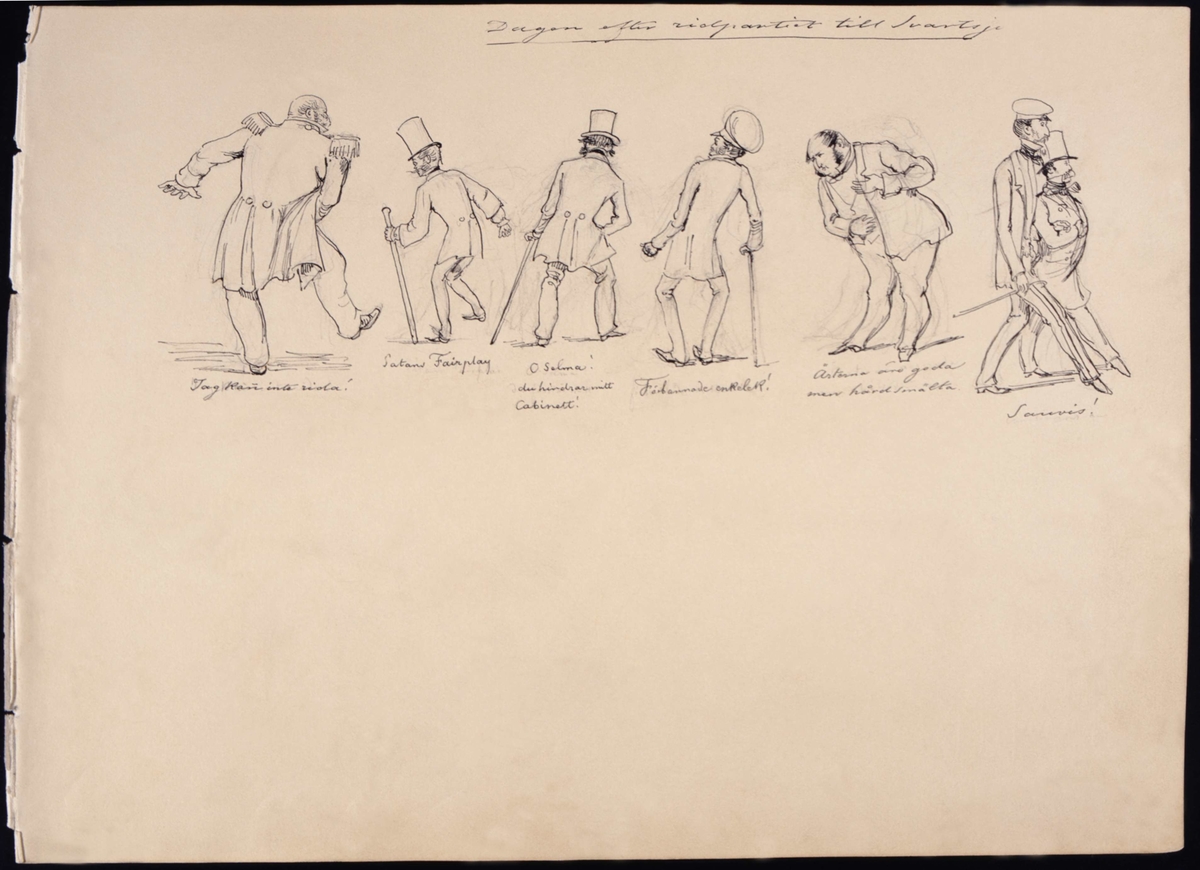 Dagen efter ridpartiet till Svartsjö
Jag kan inte rida!
Satans Fairplay
O Selma!
du hindrar mitt
Cabinett!
Förbannade enkelek!
Ärterna äro goda
men hårdsmälta